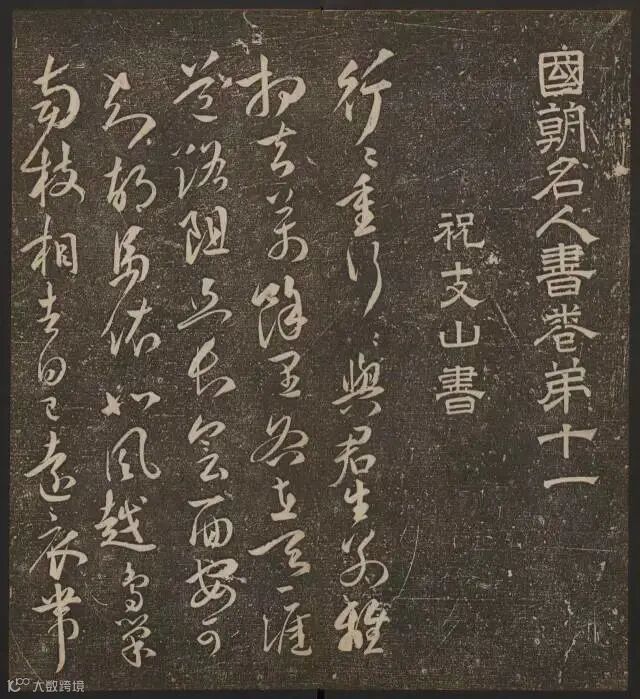 國朝名人書卷弟十一
祝支山書
行〻重行〻與君生別離
相去萬餘里各在天一涯
道路阻且長會面安可
知胡馬依北風越鳥巢
南枝相去日已遠衣帶
大数跨境